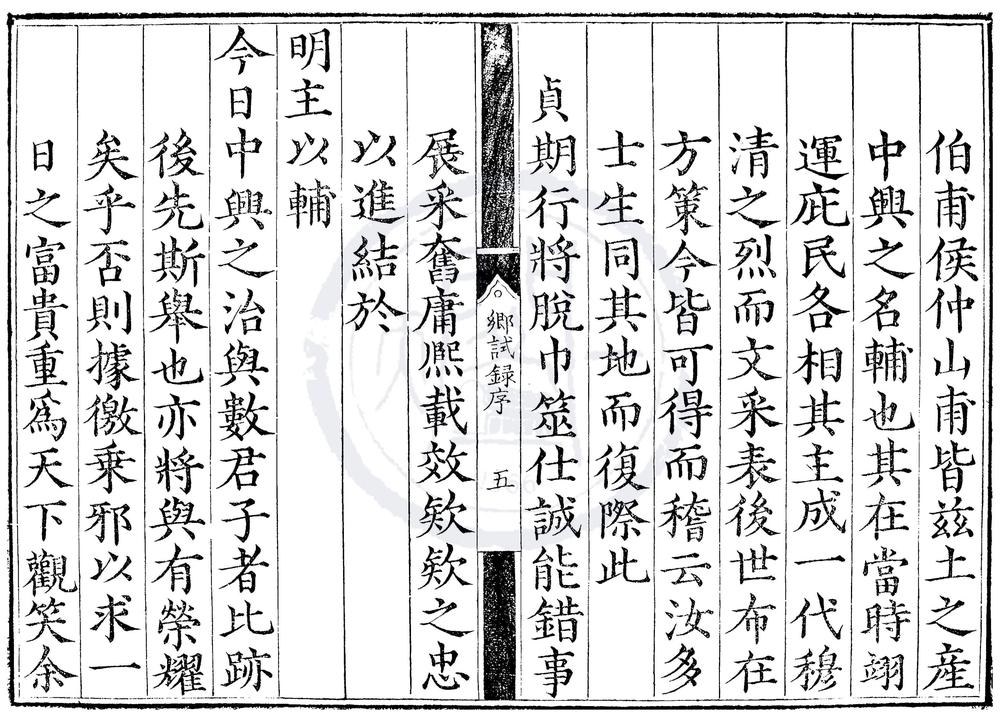 伯甫侯仲山甫皆茲土之産
中興之名輔也其在當時翊
運庇民各相其主成一代穆
清之烈而文采表後世布在
方策今皆可得而稽云汝多
士生同其地而復際此
貞期行將脫巾筮仕誠能錯事
鄉試録序
五
展采奮庸熈載效欵欵之忠
以進結於
明主以輔
今日中興之治與數君子者比跡
後先斯舉也亦將與有榮耀
矣乎否則據徼乗邪以求一
日之富貴重爲天下觀笑余